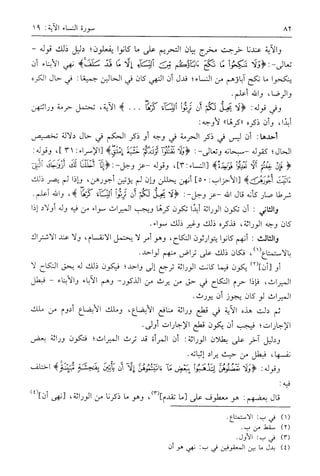 ٨٢ سورة النساء الآية: ١٩
والآية عندنا خرجت مخرج بيان التحريم على ما كانوا يفعلون؛ دليل ذلك قوله -
تعالى-: ﴿وَلَا تَنكِحُوا مَا نَكَحَ ءَابَآؤُكُم مِّنَ النِّسَآءِ إِلَّا مَا قَدْ سَلَفَ﴾ نهي الأبناء أن
ينكحوا ما نكح آباؤهم من النساء؛ فدل أن النهي كان في الحالين جميعًا: في حال الكره
والرضا، والله أعلم.
وفي قوله: ﴿لَا يَحِلُّ لَكُمْ أَن تَرِثُوا النِّسَآءَ كَرْهًا ...﴾ الآية، تحتمل حرمة وراثتهن
أبدًا، وأن ذكره «كرهًا» لأوجه:
أحدها: أن ليس في ذكر الحرمة في وجه أو ذكر الحكم في حال دلالة تخصيص
الحال؛ كقوله -سبحانه وتعالى-: ﴿وَلَا تَقْتُلُوا أَوْلَادَكُمْ خَشْيَةَ إِمْلَاقٍ﴾ [الإسراء: ٣١]، وقوله:
﴿فَإِنْ خِفْتُمْ أَلَّا تَعْدِلُوا فَوَاحِدَةً﴾ [النساء: ٣]، وقوله -عز وجل-: ﴿إِنَّا أَحْلَلْنَا لَكَ أَزْوَاجَكَ الَّتِي
ءَاتَيْتَ أُجُورَهُنَّ﴾ [الأحزاب: ٥٠] أنهن يحللن وإن لم يؤتين أجورهن، وإذا لم يصر ذلك
شرطًا صار كأنه قال الله -عز وجل-: ﴿لَا يَحِلُّ لَكُمْ أَن تَرِثُوا النِّسَآءَ كَرْهًا﴾، والله أعلم.
والثاني: أن تكون الوراثة أبدًا تكون كرهًا ويجب الميراث سواء من فيه وله أولاد إذا
كان وجه الوراثة، فذكره ذلك وغير ذلك سواء.
والثالث: أنهم كانوا يتوارثون النكاح، وهو أمر لا يحتمل الانقسام، ولا عند الاشتراك
بالاستمتاع(١)، فكان ذلك على تراض منهم لواحد.
أو [أن](٢) يكون فيما كانت الوراثة ترجع إلى واحد؛ فيكون ذلك له بحق النكاح لا
الميراث، فإذا حرم النكاح في حق من يرث من الذكور- وهم الآباء والأبناء - فبطل
الميراث لو كان يجوز أن يورث.
ثم دلت هذه الآية في قطع وراثة منافع الأبضاع، وملك الأبضاع أدوم من ملك
الإجارات؛ فيجب أن يكون قطع الإجارات أولى.
ودليل آخر على بطلان الوراثة: أن المرأة قد ترث الميراث؛ فتكون وراثة بعض
نفسها، فبطل من حيث يراد إثباته.
وقوله: ﴿وَلَا تَعْضُلُوهُنَّ لِتَذْهَبُوا بِبَعْضِ مَآ ءَاتَيْتُمُوهُنَّ إِلَّآ أَن يَأْتِينَ بِفَاحِشَةٍ مُّبَيِّنَةٍ﴾ اختلف
فيه:
قال بعضهم: هو معطوف على [ما تقدم](٣)، وهو ما ذكرنا من الوراثة، [نهى أن](٤)
(١) في ب: الاستمتاع.
(٢) سقط من ب.
(٣) في ب: الأول.
(٤) بدل ما بين المعقوفين في ب: نهي هو أن